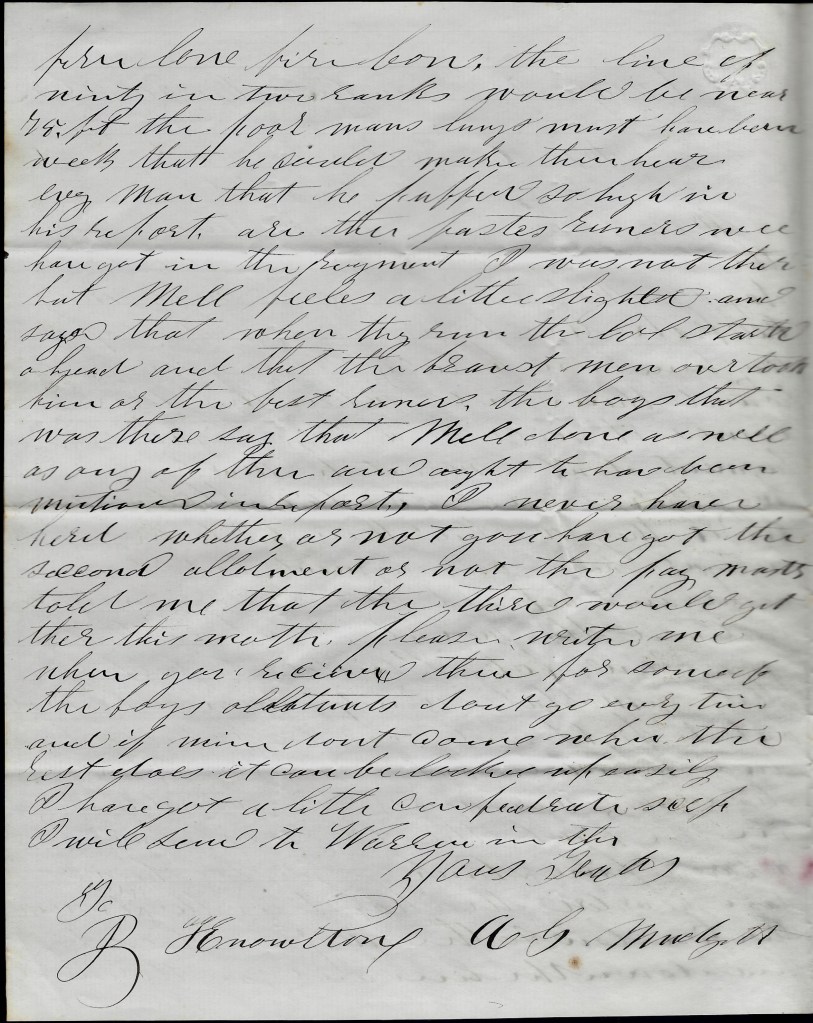 the line of
ninty in two ranks would be near
75. ft the poor mans lungs must have been
week that he could make them hear
evry man that he puffed so high in
his report. are ther fastes runers wee
have got in the regment I was not ther
but Mell feeles a little slighted and
says that when they run the Col started
ahead and that the bravest men overtook
him or the best runers. the boys that
was there say that Mell done as well
as any of them and aught to have been
mentioned in report, I never have
herd whether or not you have got the
second allotment or not the pay master
told me that the three would get
ther this month. please write me
when you recieve them for some of
the boys allotments dont go evry time
and if mine dont come when the
rest does it can be looked up easily
I have got a little confedrate scrip
I will send to Warren in this
Yours Truly
To
B Knowlton A G Mudgett